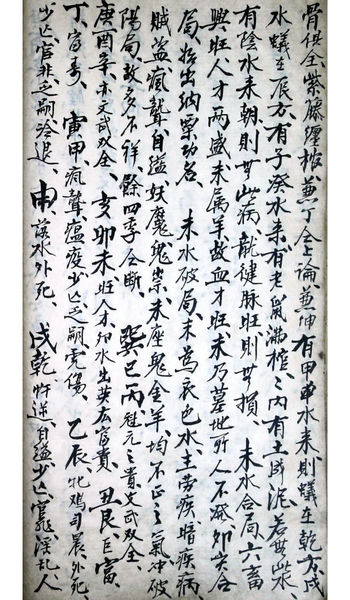 骨俱全、紫藤缠棺、兼丁仝上論、兼坤有甲卯水来則蟻在乾方、戌
水蟻在辰方、有子癸水来、有老鼠滿棺、之内有土淤泥、若無此水、
有陰水来朝、則無此病、龍健脉旺則無損 未水合局、六畜
興旺、人才兩盛、未属羊、故血才旺、未乃墓地、所人不發、如合
局、出納粟功名、 未水破局、未為衣色水、主痨疾、暗疾病
賊盗瘋聾、自縊妖魔鬼祟、未座鬼金羊、均不正之氣、冲破
陽局、故多不祥、餘四季仝断、 巽巳丙、魁元之貴、文武双全、
庚酉辛亦文武双全、亥卯未旺人才、卯水出富貴、丑艮巨富、
丁富寿、寅甲瘋聾、瘟疫少亡乏嗣虎傷、乙辰、牝鸡司晨外死、
少亡官非乏嗣冷退、申落水外死、戌乾忤逆、自縊少亡官非、淫乱人